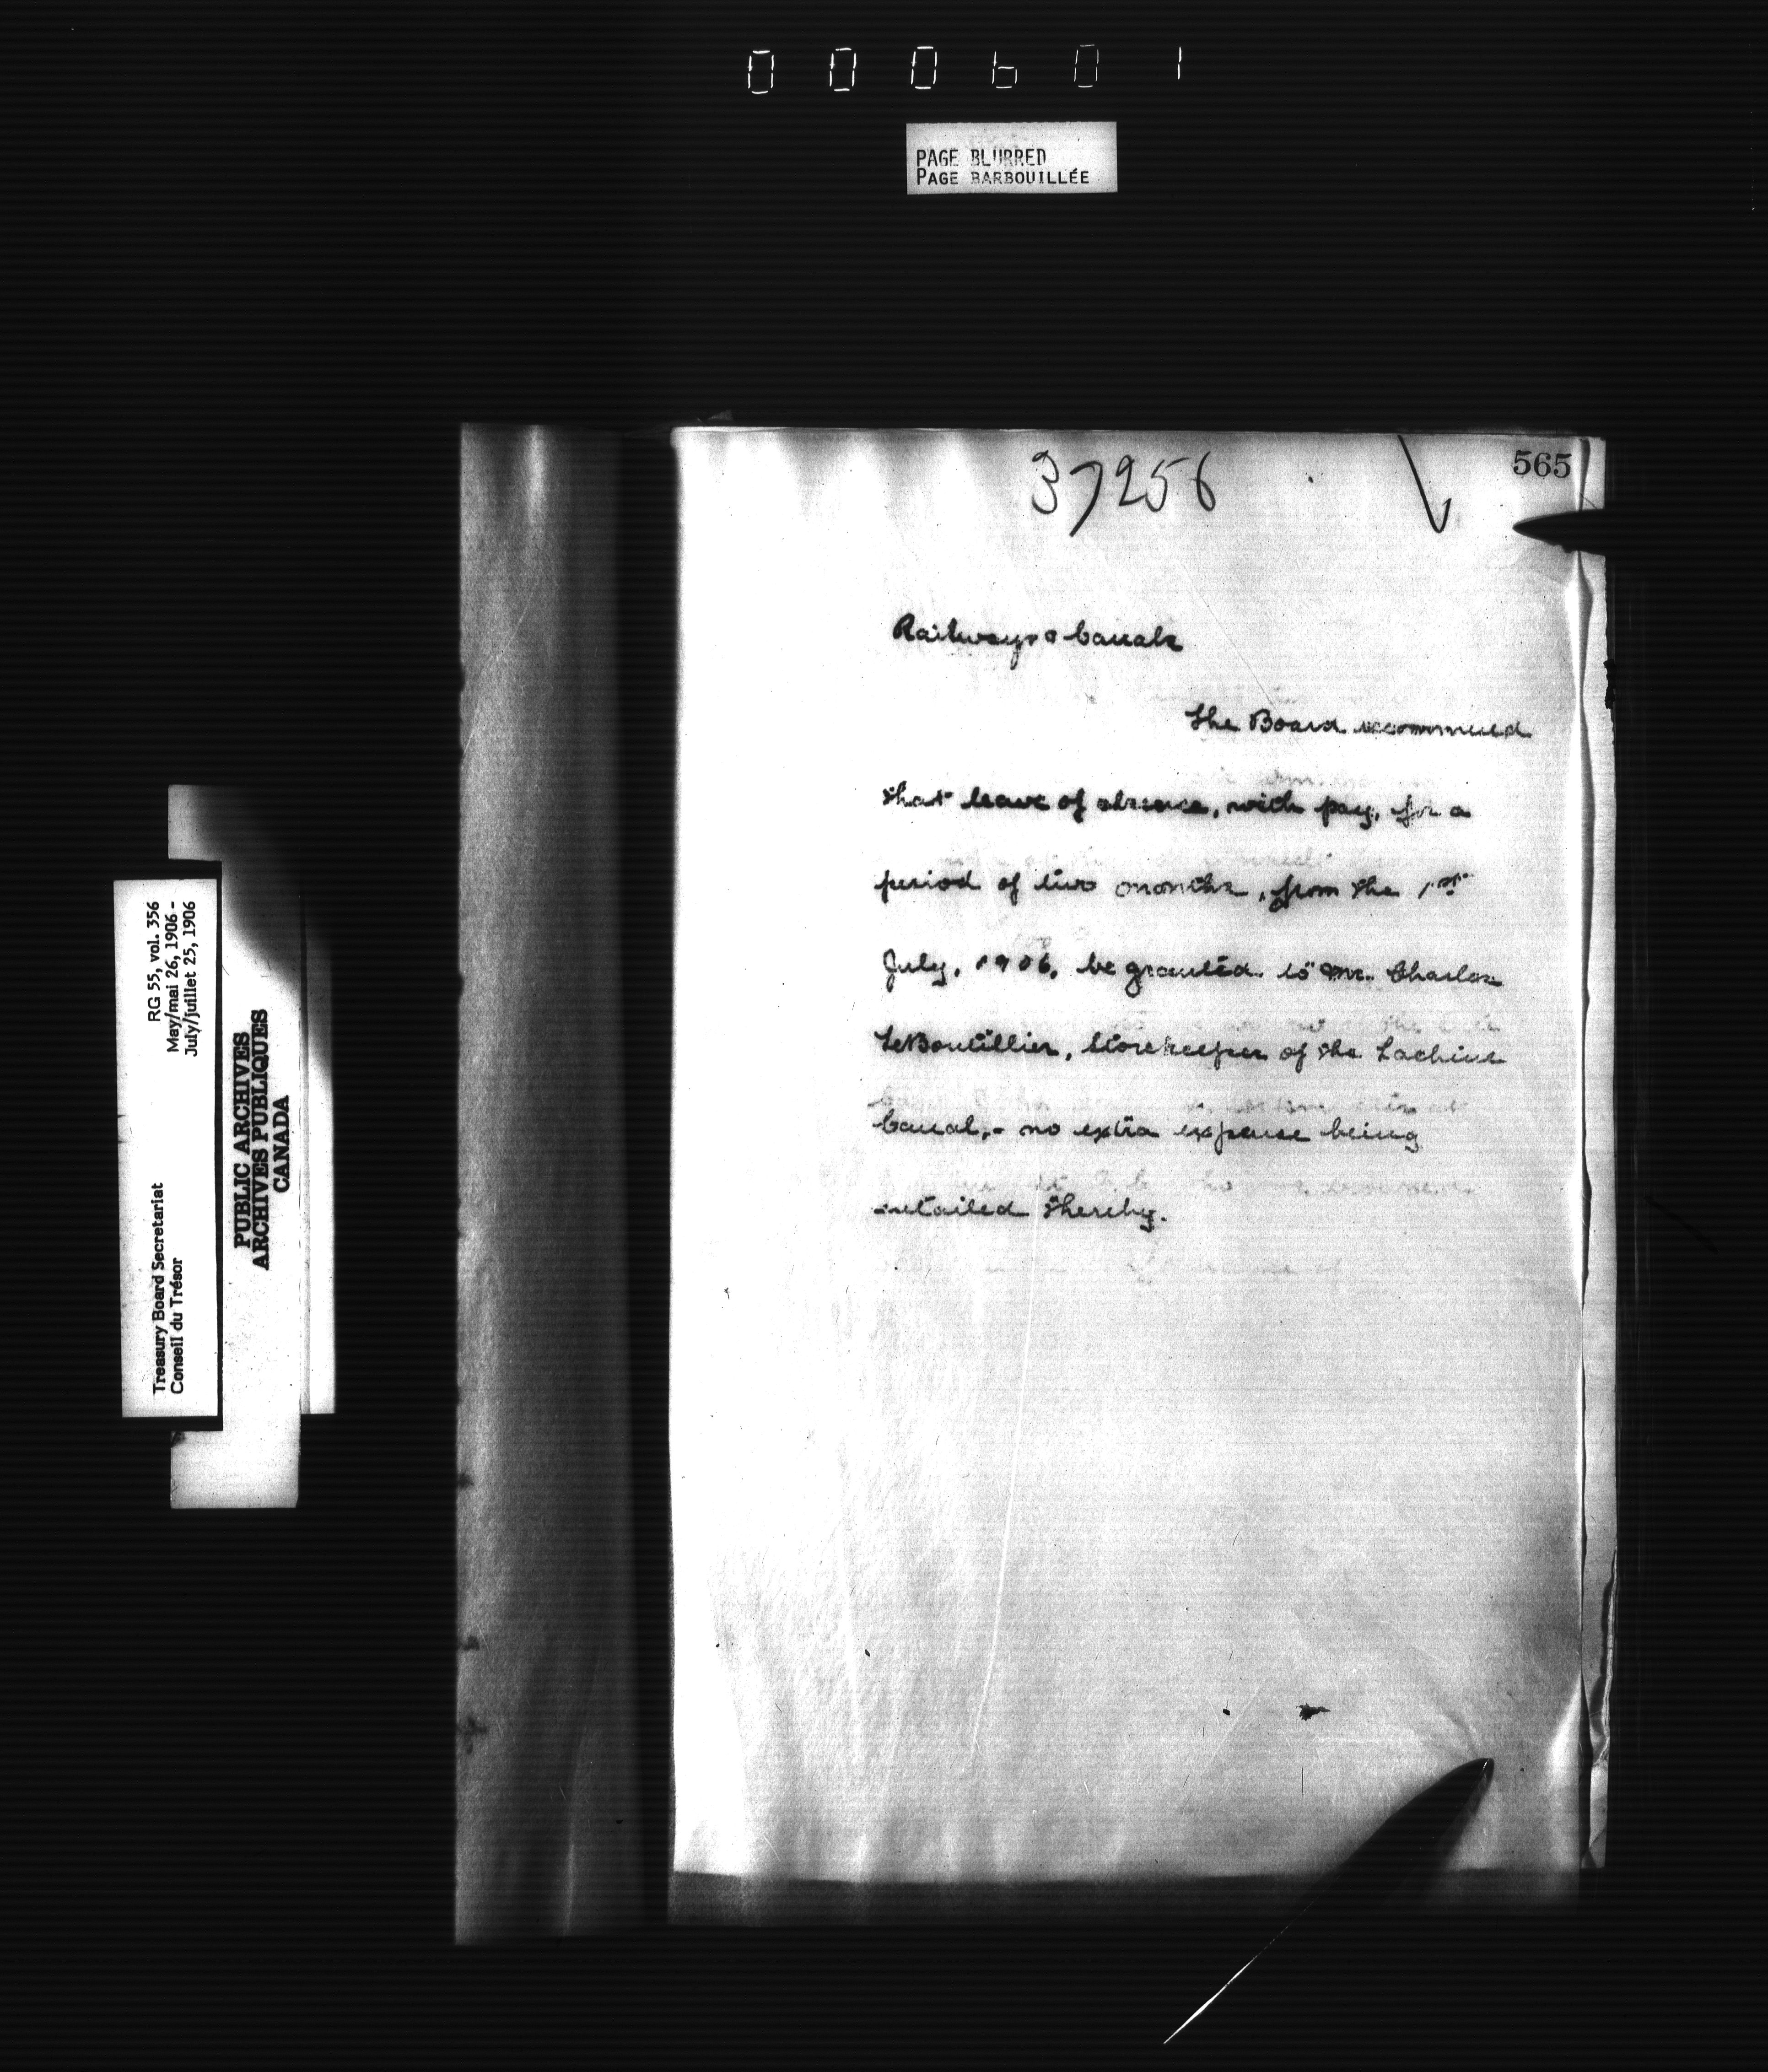 000601
PAGE BLURRED
PAGE BARBOUILLÉE
565
37256
Railways & Canals
The Board recommend
that leave of absence, with pay, for a
period of two months, from the 1st
July, 1906, be granted to Mr. Charles
LeBoutillier, Storekeeper of the Lachine
Canal,- no extra expense being
entailed thereby.
RG 55, vol. 356
May/mai 26, 1906 -
July/juillet 25, 1906
Treasury Board Secretariat
Conseil du Trésor
PUBLIC ARCHIVES
ARCHIVES PUBLIQUES
CANADA